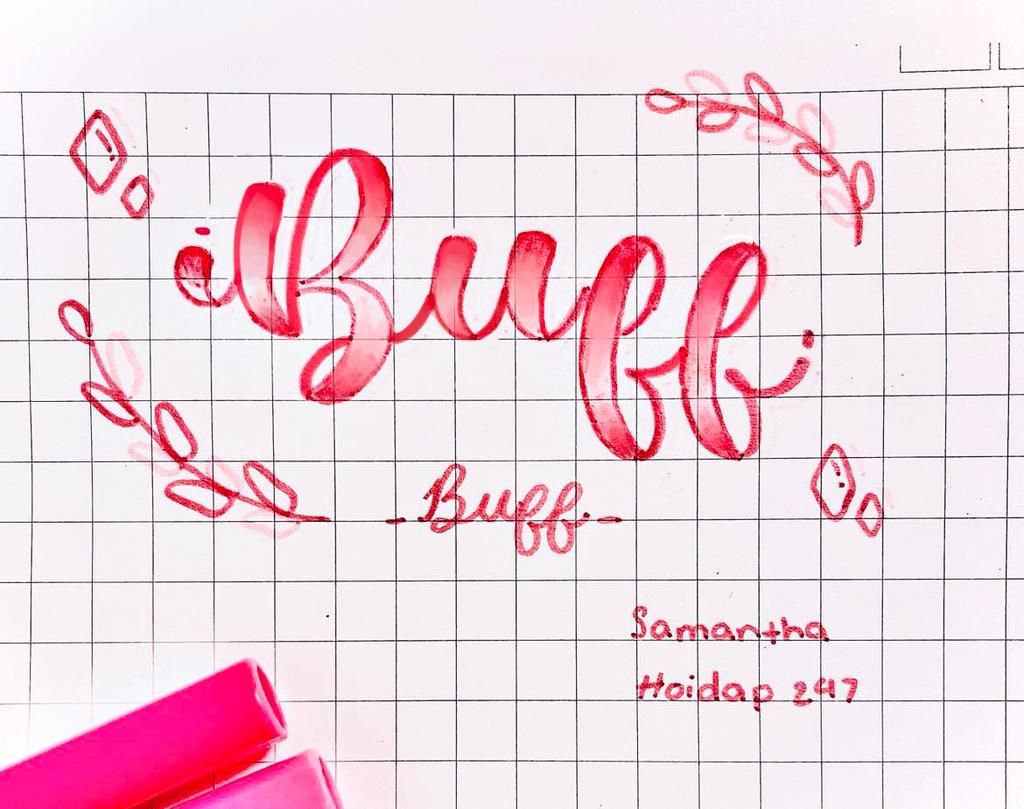 Buff
Buff
Samantha
Hoidap 247